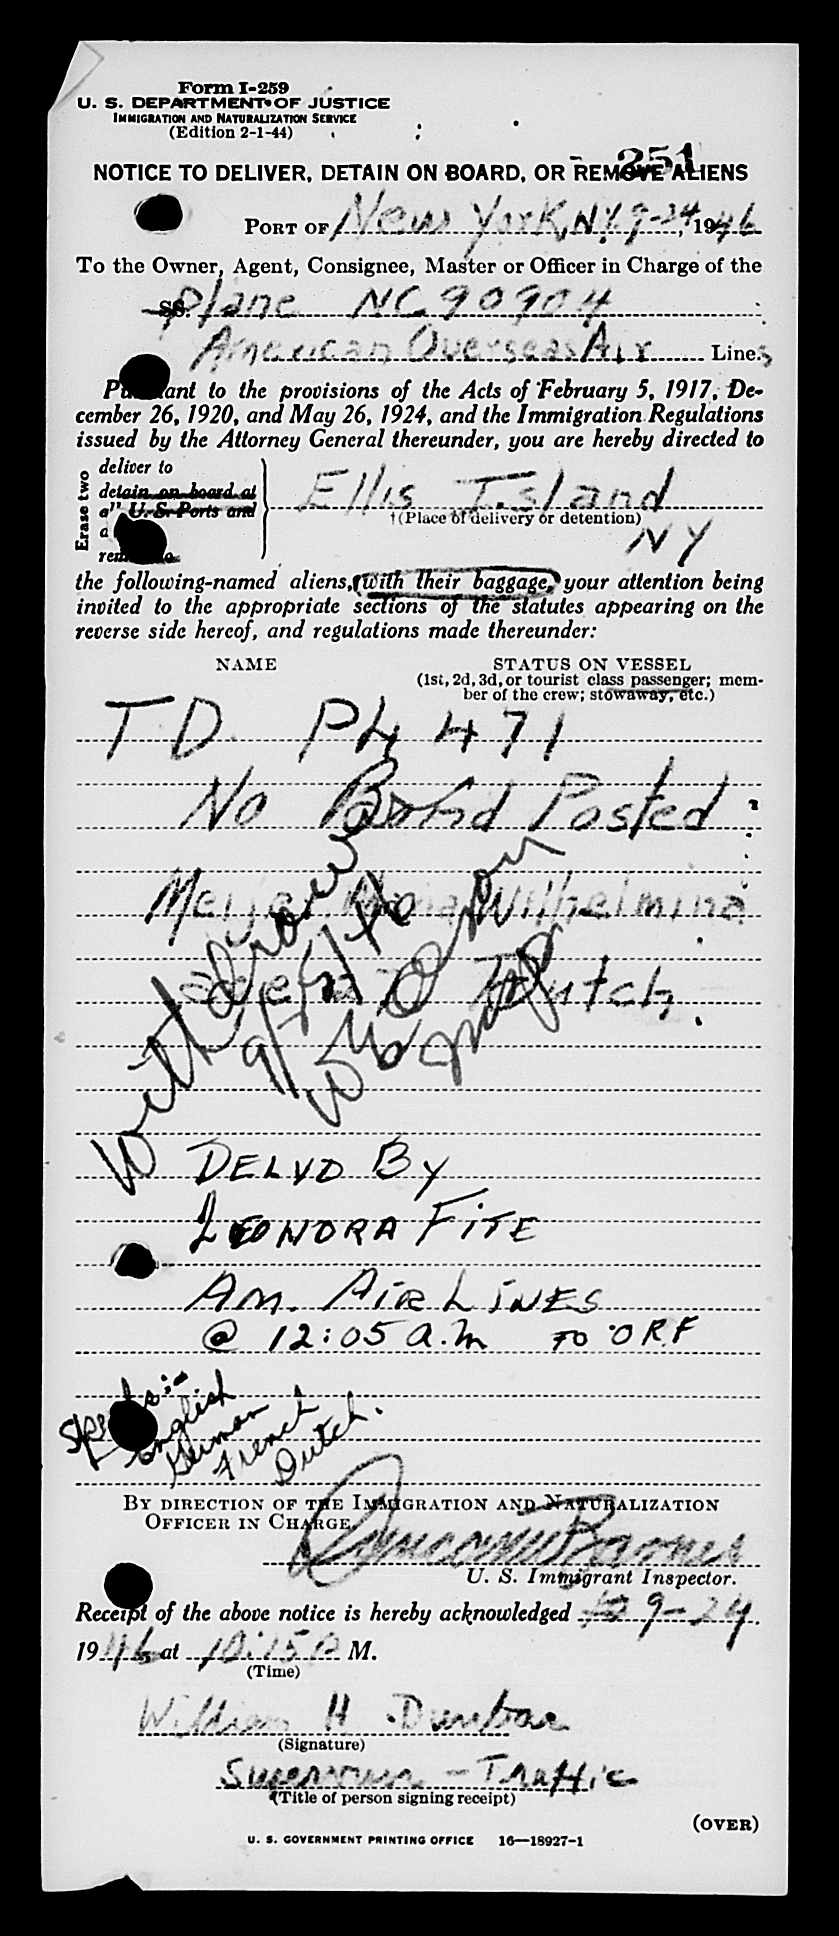 Form I-259
U. S. DEPARTMENT OF JUSTICE
IMMIGRATION AND NATURALIZATION SERVICE
(Edition 2-1-44)
251
NOTICE TO DELIVER, DETAIN ON BOARD, OR REMOVE ALIENS
PORT OF New York, N.Y. 9-24, 1946
To the Owner, Agent, Consignee, Master or Officer in Charge of the
SS. Plane NC 90904
American Overseas Air Lines
Pursuant to the provisions of the Acts of February 5, 1917, De-
cember 26, 1920, and May 26, 1924, and the Immigration Regulations
issued by the Attorney General thereunder, you are hereby directed to
Erase two
deliver to
detain on board at
U. S. Ports and
Ellis Island
(Place of delivery or detention)
NY
the following-named aliens, (with their baggage,) your attention being
invited to the appropriate sections of the statutes appearing on the
reverse side hereof, and regulations made thereunder:
NAME STATUS ON VESSEL
(1st, 2d, 3d, or tourist class passenger; mem-
ber of the crew; stowaway, etc.)
T.D. PL 471
No Bond Posted
Meijer, Wilhelmina
Dutch
Withdrawn
DELVD BY
LEONORA FITE
AM. AIRLINES
@ 12:05 a.m TO O R F
Speaks:-
English
German
French
Dutch.
BY DIRECTION OF THE IMMIGRATION AND NATURALIZATION
OFFICER IN CHARGE
U. S. Immigrant Inspector.
Receipt of the above notice is hereby acknowledged 9-24
1946, at 10:15 P M.
(Time)
William H Dunbar
(Signature)
Supervisor - Traffic
(Title of person signing receipt)
(OVER)
U. S. GOVERNMENT PRINTING OFFICE 16—18927-1